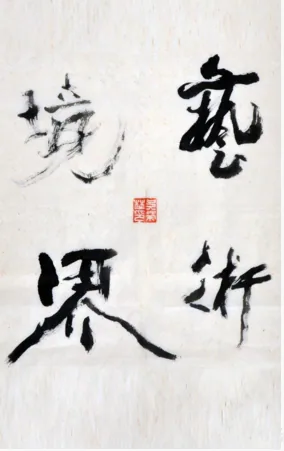 藝術
境界